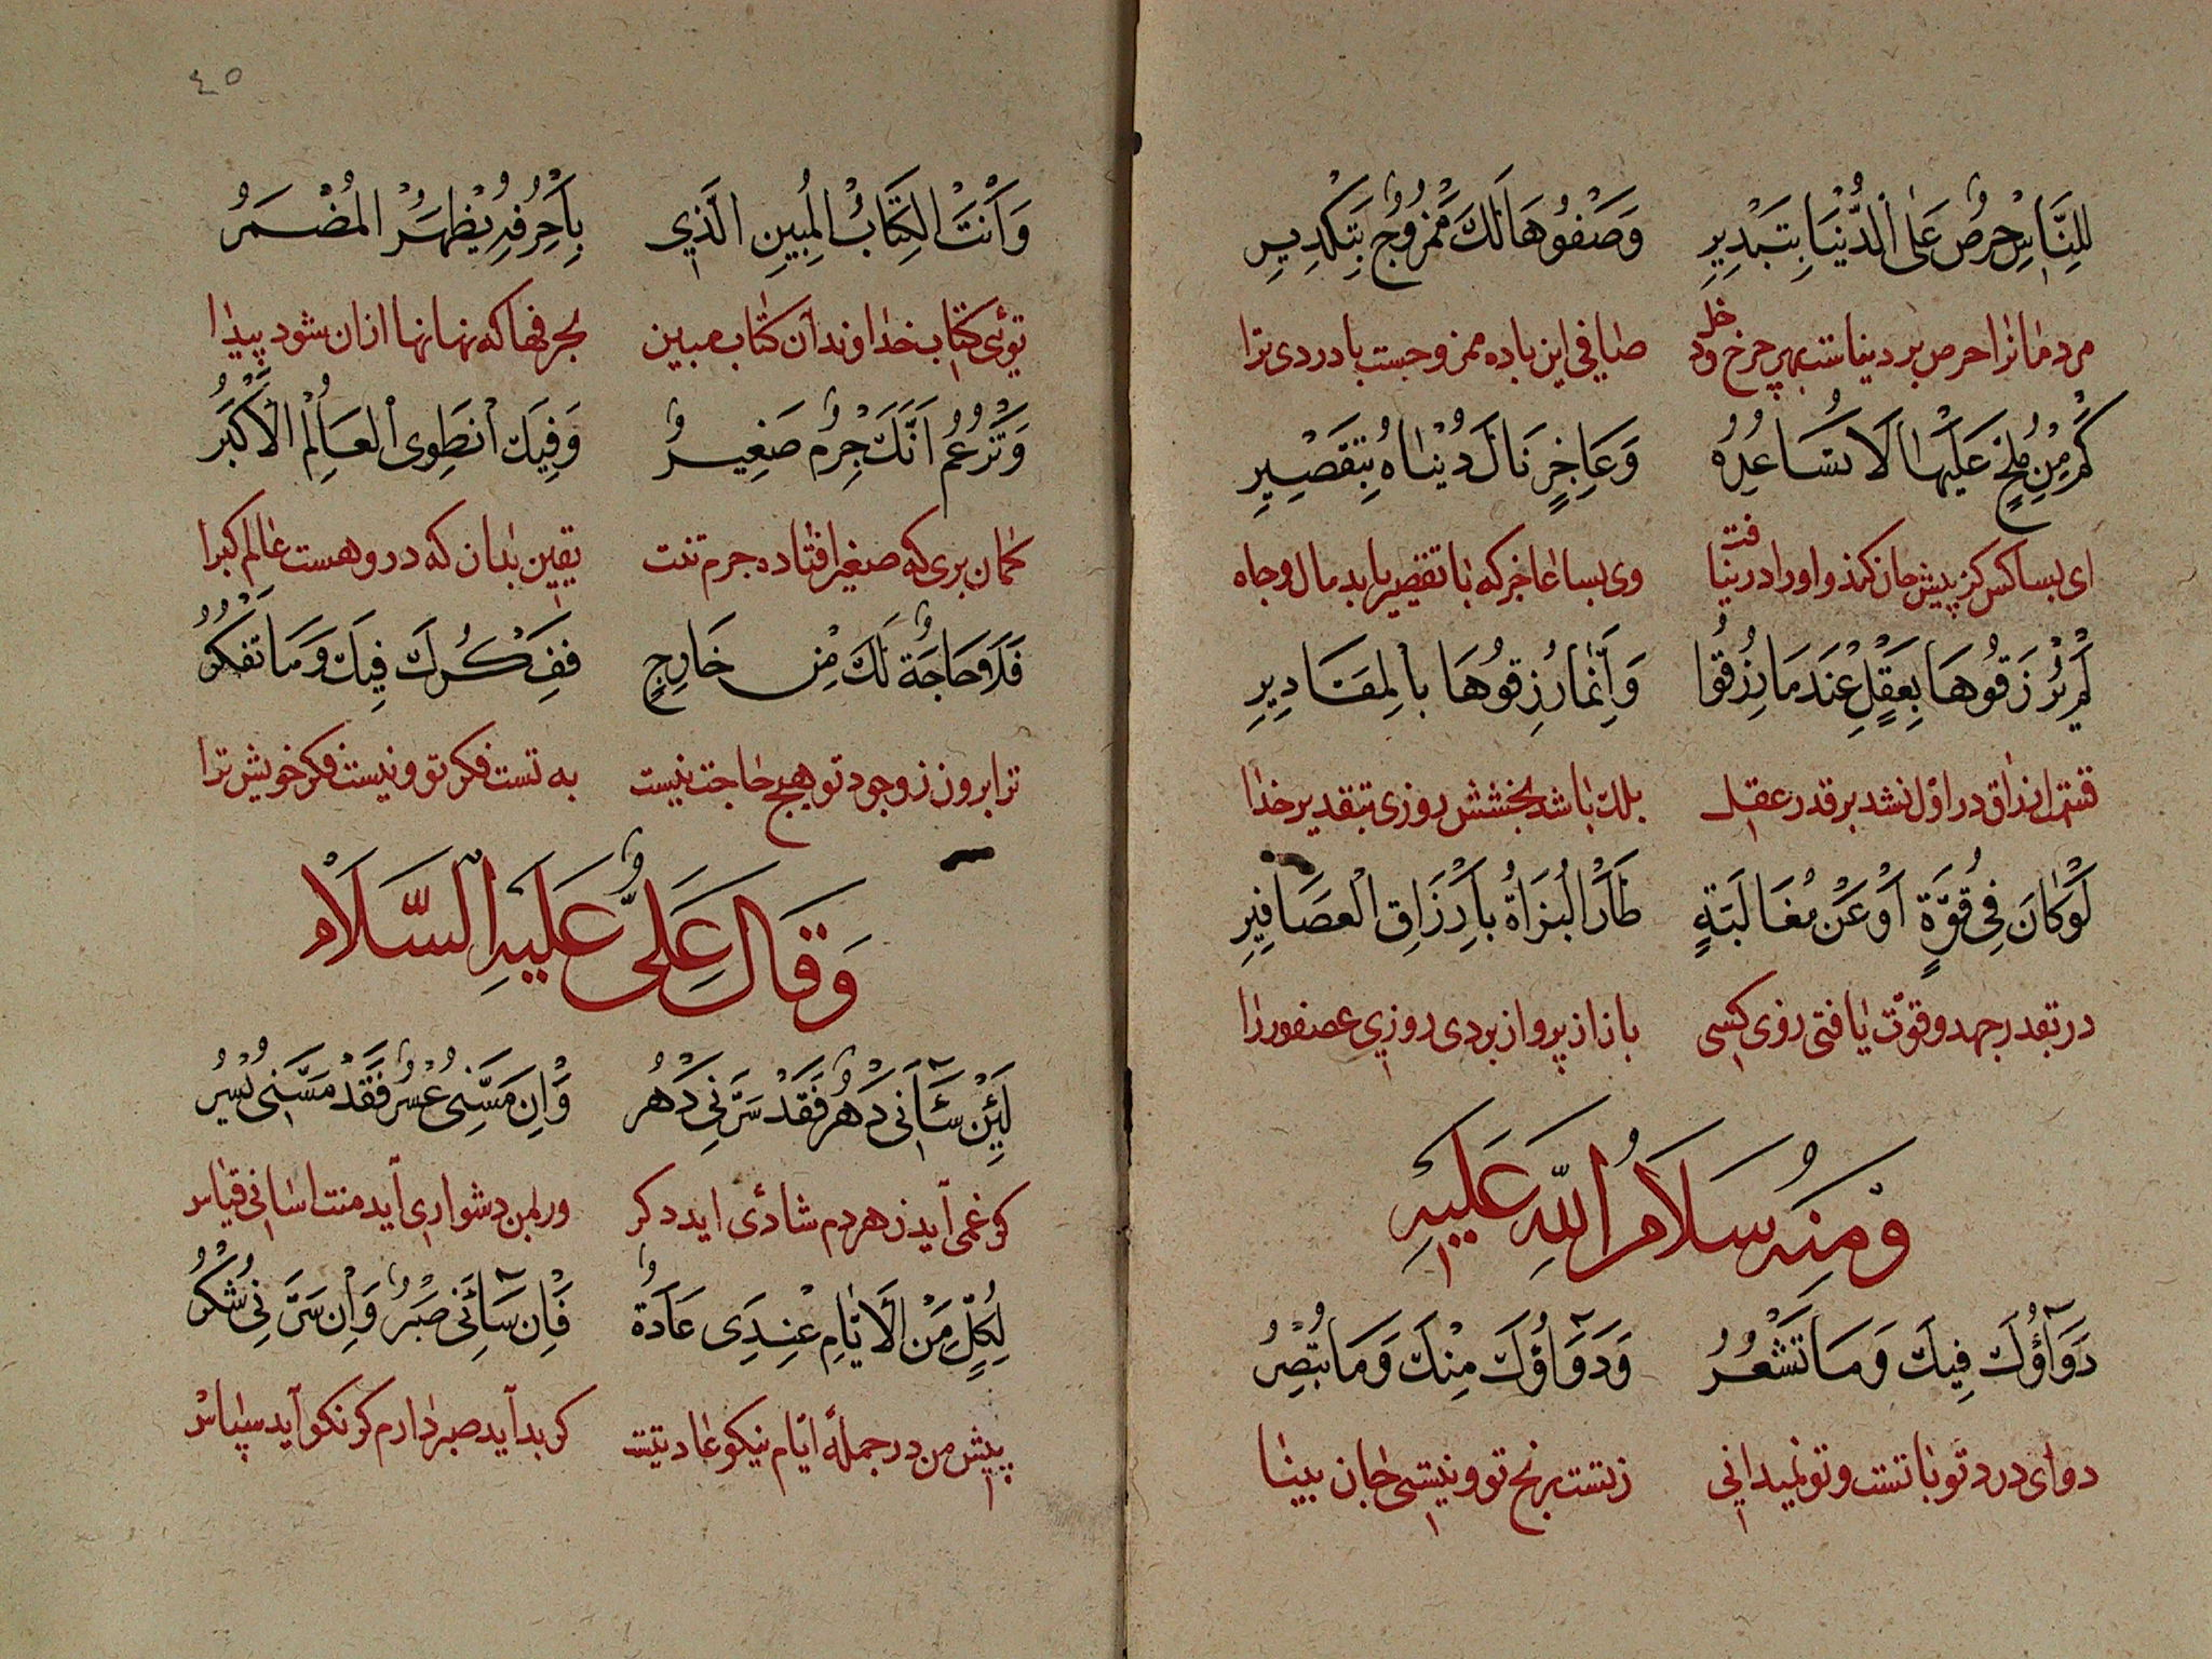 لِلنَّاسِ حِرْصٌ عَلَى الدُّنْيَا بِتَبْدِيرِ وَصَفْوُهَا لَكَ مَمْزُوجٌ بِتَكْدِيرِ
مردمانرا حرص بر دنیاست بهر چرخ صافی این باده ممزوجست با دردی ترا
كَمْ مِنْ مُلِحٍّ عَلَيْهَا لَا تُسَاعِدُهُ وَعَاجِزٍ نَالَ دُنْيَاهُ بِتَقْصِيرِ
ای بسا کس کز پیش جان کند و او را در نیافت وی بسا عاجز که با تقصیر یابد مال وجاه
لَمْ يُرْزَقُوهَا بِعَقْلٍ عِنْدَمَا رُزِقُوا وَإِنَّمَا رُزِقُوهَا بِالْمَقَادِيرِ
قسمت ارزاق در اوّل نشد بر قدر عقل بلک باشد بخشش روزی بتقدیر خدا
لَوْ كَانَ فِي قُوَّةٍ أَوْ عَنْ مُغَالَبَةٍ طَارَ الْبُزَاةُ بِأَرْزَاقِ الْعَصَافِيرِ
در بقدر جهد و قوّت یافتی روزی کسی باز از پرواز بردی روزی عصفور را
وَمِنْهُ سَلَامُ اللّٰهِ عَلَيْهِ
دَوَاؤُكَ فِيكَ وَمَا تَشْعُرُ وَدَوَاؤُكَ مِنْكَ وَمَا تُبْصِرُ
دوای درد تو با تست و تو نمیدانی زتست رنج تو و نیستی جان بینا
٤٥
وَأَنْتَ الْكِتَابُ الْمُبِينِ الَّذِي بِأَحْرُفِهِ يُظْهَرُ الْمُضْمَرُ
توئی کتاب خداوند آن کتاب مبین بحرفها که نهانها ازان شود پیدا
وَتَزْعُمُ أَنَّكَ جِرْمٌ صَغِيرٌ وَفِيكَ انْطَوَى الْعَالَمُ الْأَكْبَرُ
گمان بری که صغیر افتاده جرم تنت یقین بدان که در و هست عالم کبرا
فَلَا حَاجَةٌ لَكَ مِنْ خَارِجٍ فَفِكْرُكَ فِيكَ وَمَا تَفَكَّرُ
ترا برون ز وجود تو هیچ حاجت نیست به تست فکر تو و نیست فکر خویش ترا
وَقَالَ عَلِيٌّ عَلَيْهِ السَّلَامْ
لَئِنْ سَآئَنِي دَهْرٌ فَقَدْ سَرَّنِي دَهْرُ وَإِنْ مَسَّنِي عُسْرٌ فَقَدْ مَسَّنِي يُسْرُ
گر غمی آید ز هر دم شادئ اید دگر ور بمن دشواری آید منت اسانی قیاس
لِكُلٍّ مِنَ الْأَيَّامِ عِنْدِي عَادَةٌ فَإِنْ سَآئَنِي صَبْرٌ وَإِنْ سَرَّنِي شُكْرُ
پیش من در جملهٔ ایّام نیکو عادتیست گر بد آید صبر دارم گر نکو آید سپاس